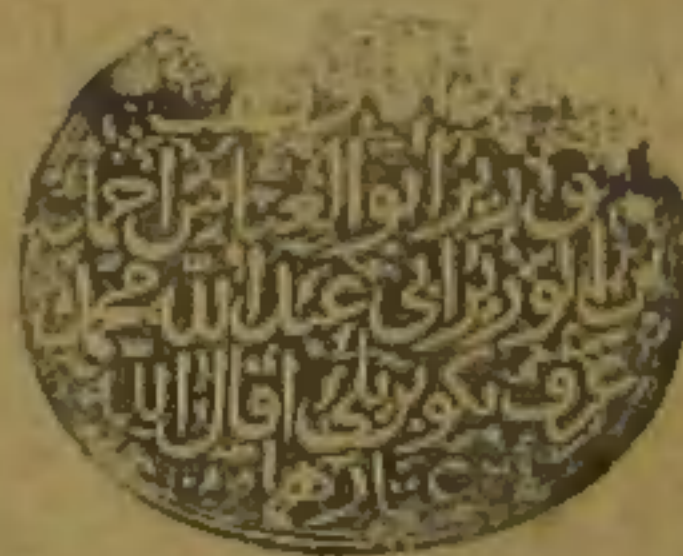 الوزير أبو العباس أحمد
بن الوزير أبي عبد الله محمد
عرف بكوبريلي أقال الله
عثارهما